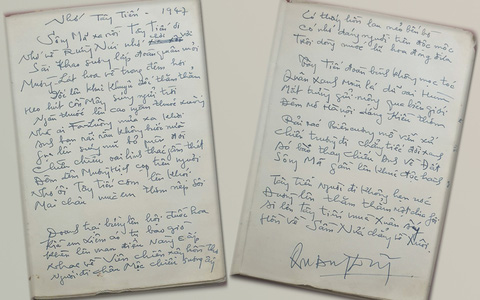 Nhớ Tây Tiến - 1947
Sông Mã xa rồi Tây Tiến ơi
Nhớ về Rừng Núi nhớ chơi vơi
Sài Khao sương lấp đoàn quân mỏi
Mường Lát hoa về trong đêm hơi
Dốc lên khúc khuỷu dốc thăm thẳm
Heo hút cồn Mây súng ngửi trời
Ngàn thước lên cao ngàn thước xuống
Nhà ai Pha Luông mưa xa khơi
Anh bạn không bước nữa
Gục lên súng mũ bỏ quên đời
Chiều chiều oai linh thác gầm thét
Đêm đêm Mường Hịch cọp trêu người
Nhớ ôi Tây Tiến cơm lên khói
Mai châu mùa em thơm nếp xôi
Doanh trại bừng lên hội đuốc hoa
Kìa em xiêm áo tự bao giờ
Khèn lên man điệu nàng e ấp
Nhạc về Viên Chăn xây hồn thơ
Người đi Châu Mộc chiều sương ấy
Có thấy hồn lau nẻo bến bờ
Có nhớ dáng người trên độc mộc
Trôi dòng nước lũ hoa đong đưa
Tây Tiến đoàn binh không mọc tóc
Quân xanh màu lá dữ oai hùm
Mắt trừng gửi mộng qua biên giới
Đêm mơ Hà Nội dáng kiều thơm
Rải rác biên cương mồ viễn xứ
Chiến trường đi chẳng tiếc đời xanh
Áo bào thay chiếu Anh về Đất
Sông Mã gầm lên khúc độc hành
Tây Tiến người đi không hẹn ước
Đường lên thăm thẳm một chia phôi
Ai lên Tây Tiến mùa Xuân ấy
Hồn về Sầm Nứa chẳng về xuôi
Quang Dũng